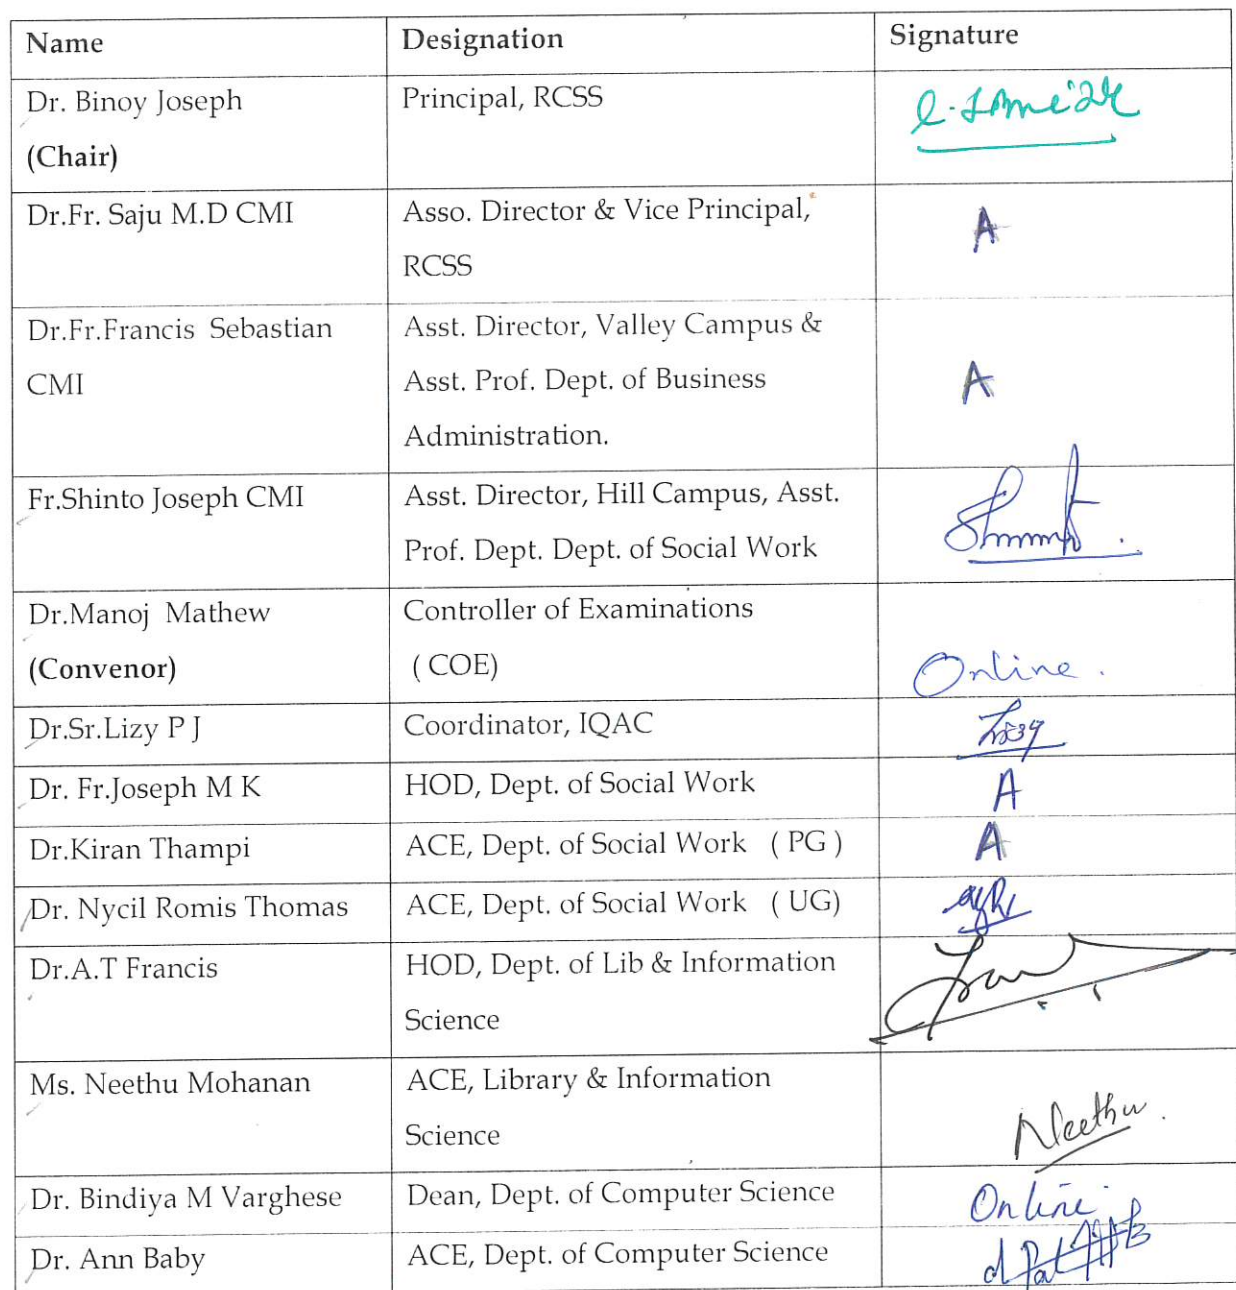 Name Designation Signature
Dr. Binoy Joseph Principal, RCSS
(Chair)
Dr.Fr. Saju M.D CMI Asso. Director & Vice Principal, A
RCSS
Dr.Fr.Francis Sebastian Asst. Director, Valley Campus &
CMI Asst. Prof. Dept. of Business A
Administration.
Fr.Shinto Joseph CMI Asst. Director, Hill Campus, Asst.
Prof. Dept. Dept. of Social Work
Dr.Manoj Mathew Controller of Examinations
(Convenor) ( COE) Online.
Dr.Sr.Lizy P J Coordinator, IQAC
Dr. Fr.Joseph M K HOD, Dept. of Social Work A
Dr.Kiran Thampi ACE, Dept. of Social Work ( PG ) A
Dr. Nycil Romis Thomas ACE, Dept. of Social Work ( UG)
Dr.A.T Francis HOD, Dept. of Lib & Information
Science
Ms. Neethu Mohanan ACE, Library & Information
Science Neethu.
Dr. Bindiya M Varghese Dean, Dept. of Computer Science Online
Dr. Ann Baby ACE, Dept. of Computer Science